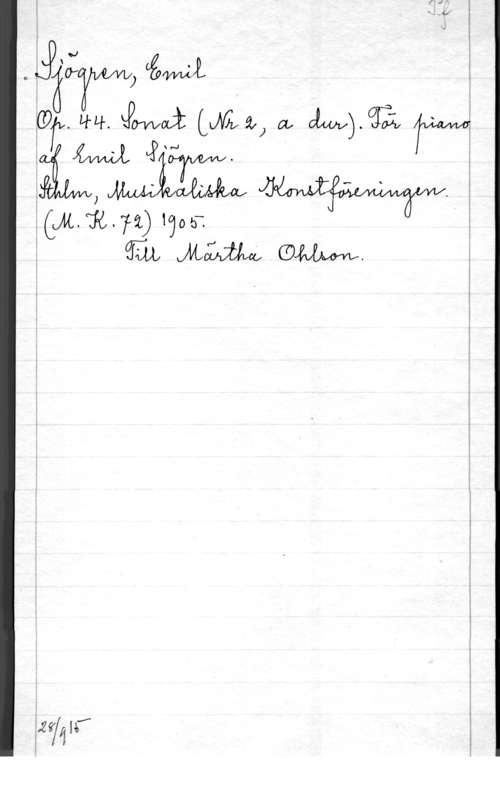 Pf
Sjögren, Emil
Op. 44. Sonat (Nr 2, a dur). För piano
af Emil Sjögren.
Sthlm, Musikaliska Konstföreningen.
(M. K. 72) 1905.
Till Märtha Ohlson.
28/9 15